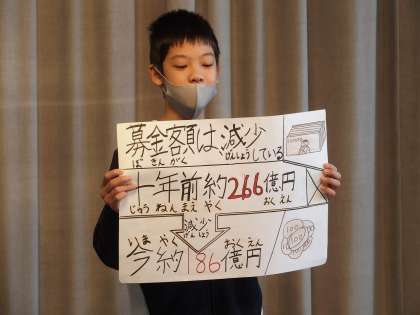 募金額は、減少
ぼ きん がく げんしょう している
十年前約266億円
じゅう ねん まえ やく おく えん
減少
げんしょう
いま やく おく えん
今約186億円